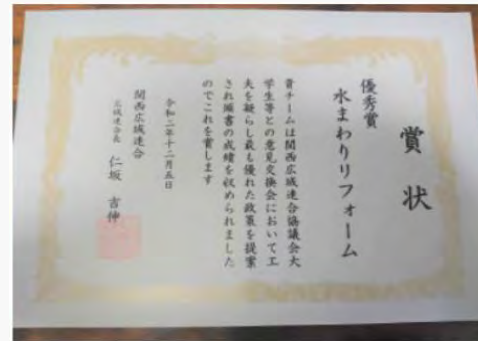 賞状
優秀賞
水まわりリフォーム
貴チームは関西広域連合協議会大
学生等との意見交換会において工
夫を凝らし最も優れた政策を提案
され頭書の成績を収められました
のでこれを賞します
令和二年十二月五日
関西広域連合
広域連合長 仁坂 吉伸